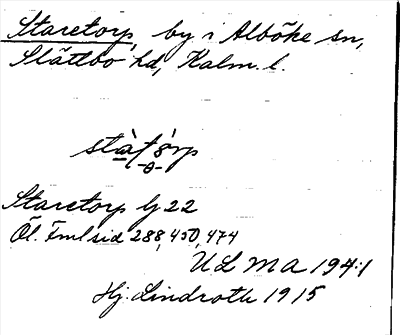 Staretorp, by i Alböke sn,
Slättbo hd, Kalm. l.
Staretorp G 22
Öl. Fml sid 288, 450, 474
ULMA 194:1
Hj. Lindroth 1915